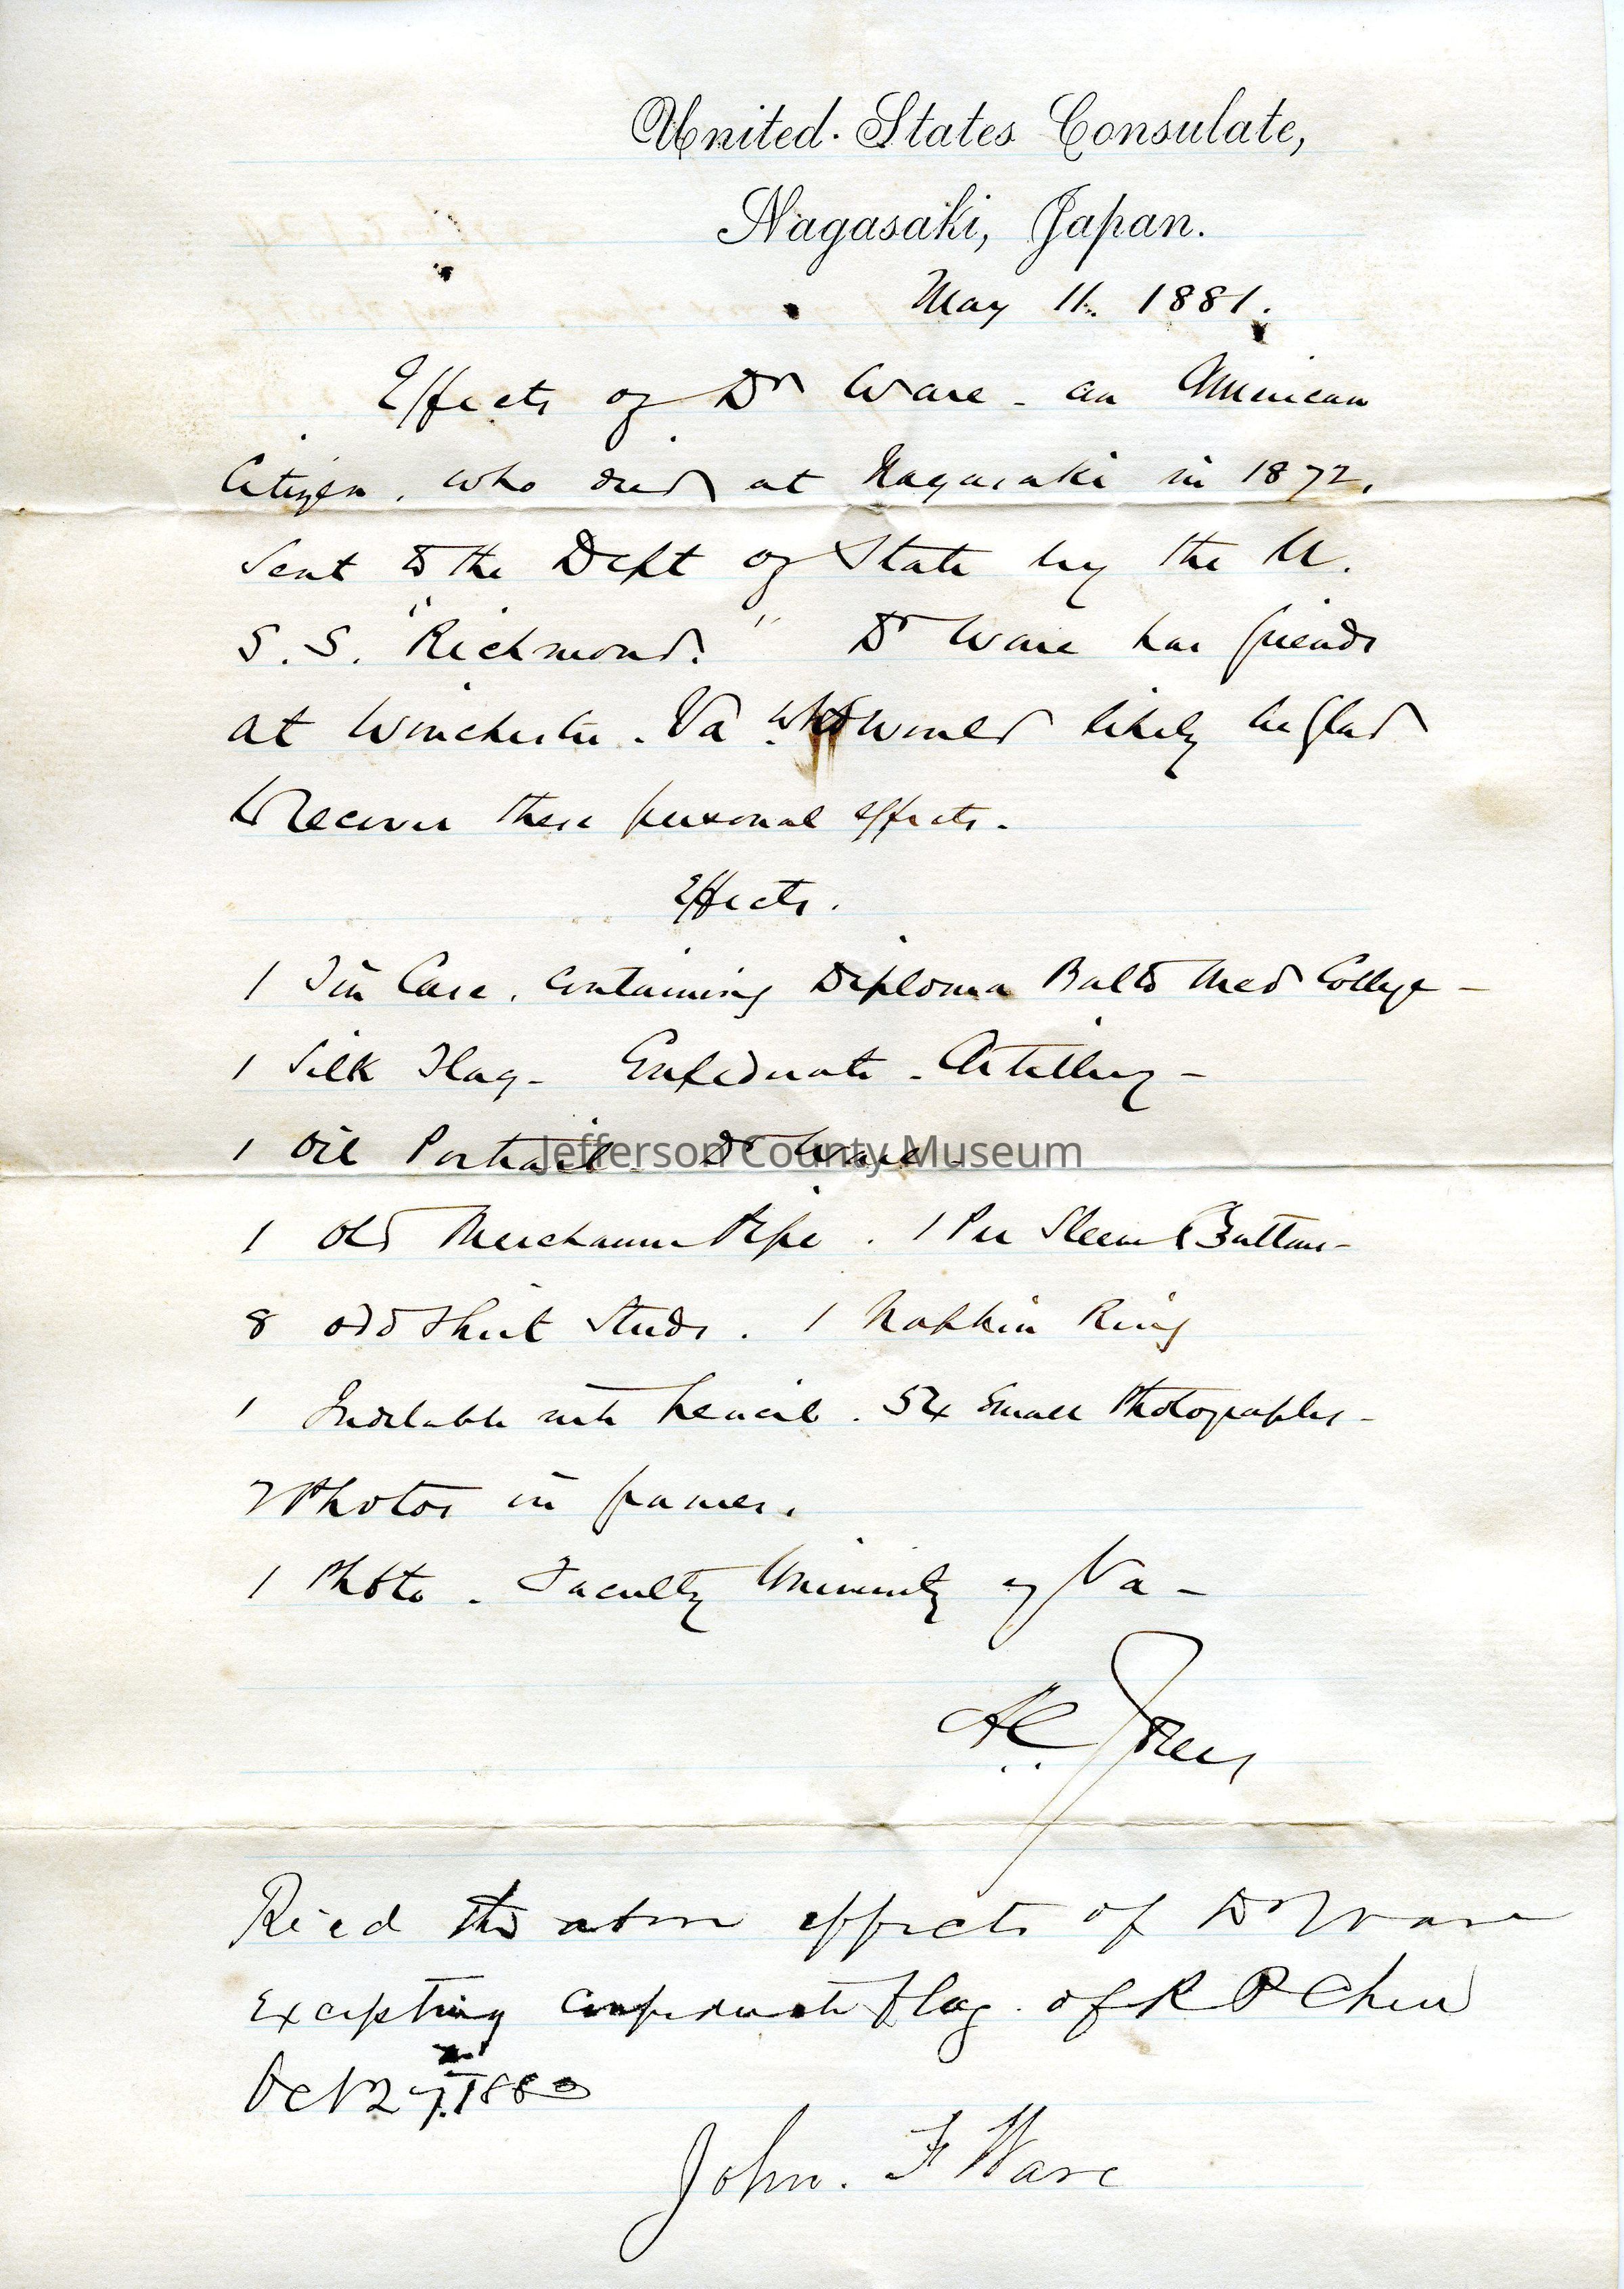 United States Consulate,
Nagasaki, Japan.
May 11. 1881.
Effects of Dr Ware - an American
Citizen, who died at Nagasaki in 1872,
Sent to the Dept of State by the U.
S. S. "Richmond." Dr Ware has friends
at Winchester. Va who would likely be glad
to recover these personal effects.
Effects.
1 Tin Case, containing Diploma Balto Med College -
1 Silk Flag - Confederate - Artillery -
1 Oil Portrait - Dr Ware -
Jefferson County Museum
1 Old Meerchaum Pipe. 1 Pr Sleeve Buttons -
8 odd Shirt Studs. 1 Napkin Ring
1 Indelable pencil. 54 Small Photographs -
7 Photos in frames.
1 Photo - Faculty University of Va -
A. C. Jones
Rec'd the above effects of Dr Ware
Excepting confederate flag of R P Chew
Oct 27. 1880
John. F Ware